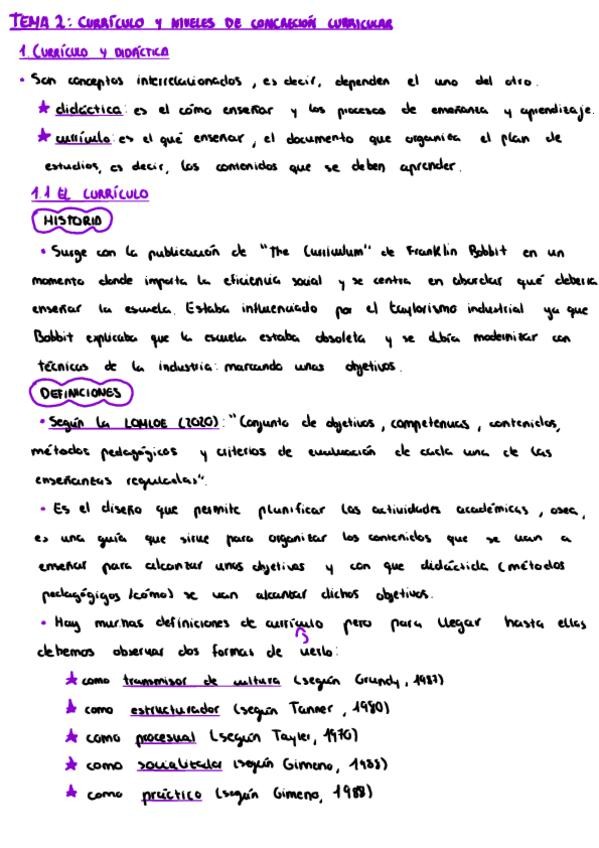 TEMA 2: CURRÍCULO Y NIVELES DE CONCRECIÓN CURRICULAR
1. CURRÍCULO Y DIDÁCTICA
• Son conceptos interrelacionados, es decir, dependen el uno del otro.
★ didáctica: es el cómo enseñar y los procesos de enseñanza y aprendizaje.
★ currículo: es el qué enseñar, el documento que organiza el plan de
estudios, es decir, los contenidos que se deben aprender.
1.1 EL CURRÍCULO
HISTORIA
• Surge con la publicación de "The Curriculum" de Franklin Bobbit en un
momento donde importa la eficiencia social y se centra en abordar qué debería
enseñar la escuela. Estaba influenciado por el taylorismo industrial ya que
Bobbit explicaba que la escuela estaba obsoleta y se debía modernizar con
técnicas de la industria: marcando unos objetivos.
DEFINICIONES
• Según la LOMLOE (2020): "Conjunto de objetivos, competencias, contenidos,
métodos pedagógicos y criterios de evaluación de cada una de las
enseñanzas reguladas".
• Es el diseño que permite planificar las actividades académicas, osea,
es una guía que sirve para organizar los contenidos que se van a
enseñar para alcanzar unos objetivos y con que didáctida (métodos
pedagógigos /cómo) se van alcanzar dichos objetivos.
• Hay muchas definiciones de currículo pero para llegar hasta ellas
debemos observar dos formas de verlo:
★ como transmisor de cultura (según Grundy, 1987)
★ como estructurador (según Tanner, 1980)
★ como procesual (según Tayler, 1970)
★ como socialitada (según Gimeno, 1988)
★ como práctico (según Gimeno, 1988)